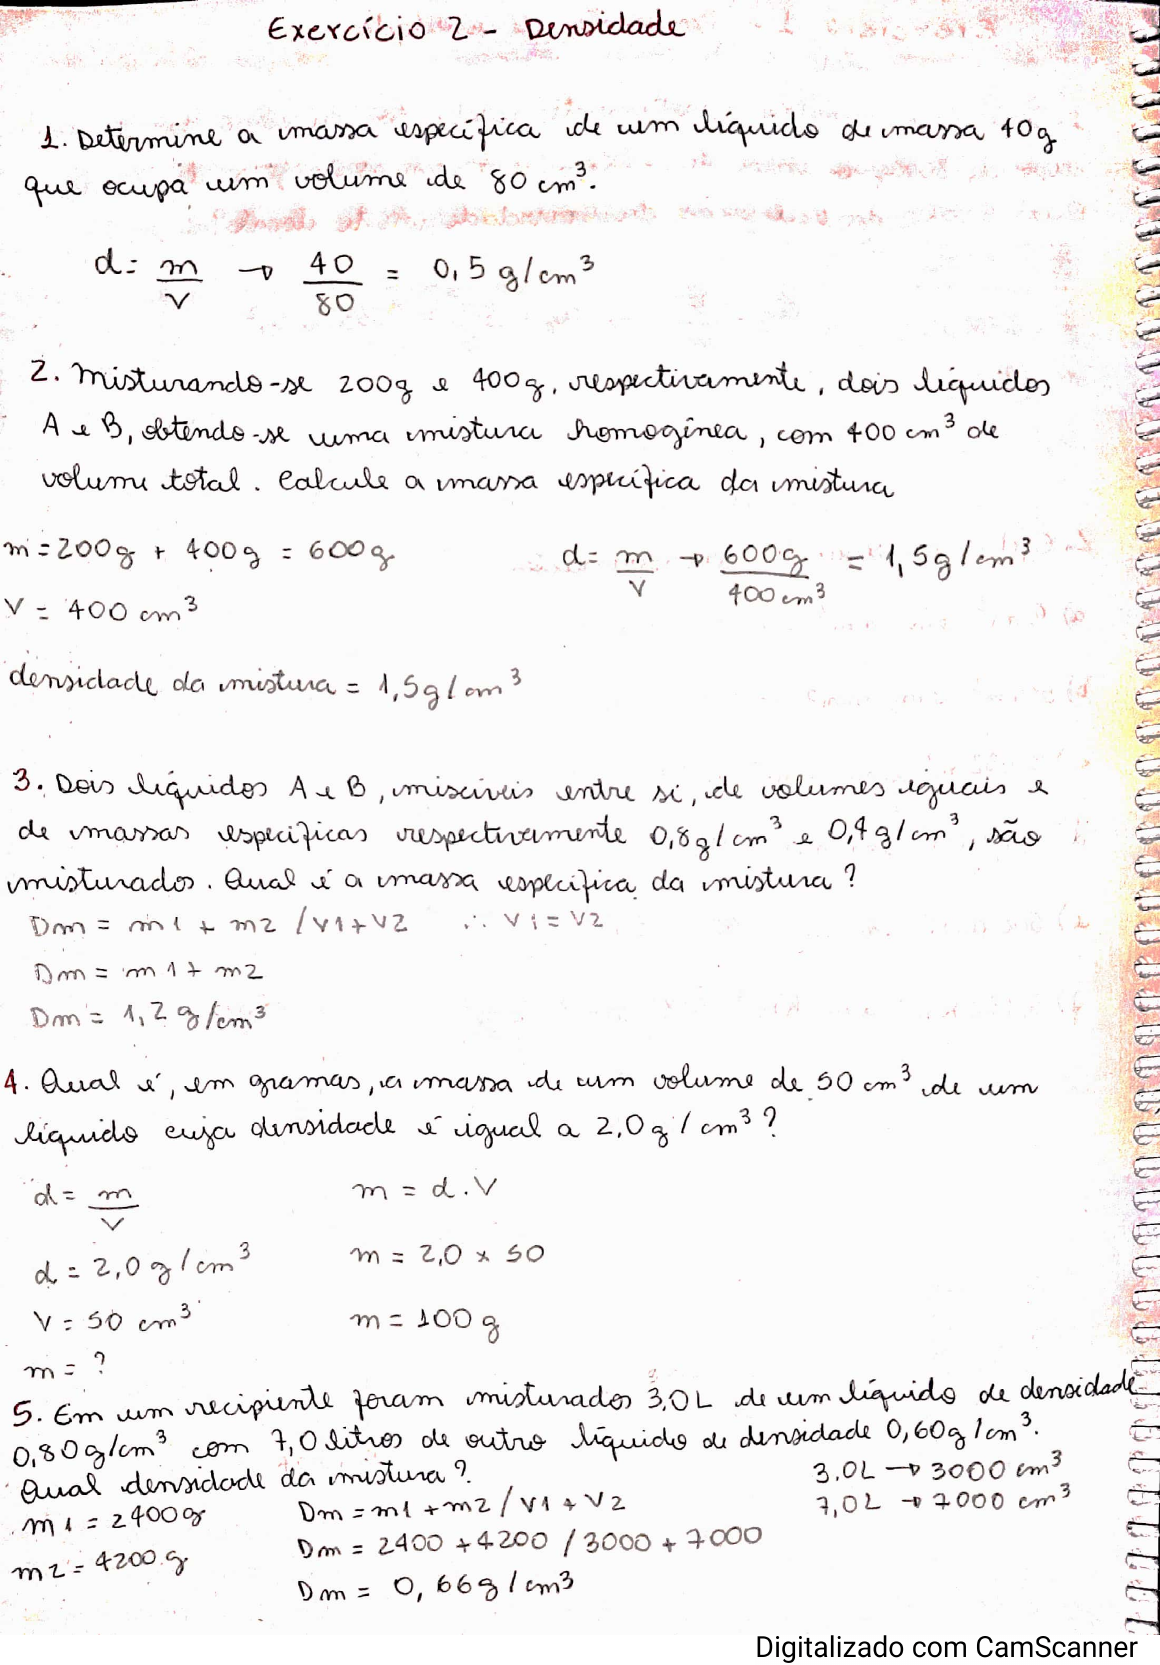 Exercício 2 - Densidade
1. Determine a massa específica de um líquido de massa 40g
que ocupa um volume de 80 cm³.
d = m/V → 40/80 = 0,5 g/cm³
2. Misturando-se 200g e 400g, respectivamente, dois líquidos
A e B, obtendo-se uma mistura homogênea, com 400 cm³ de
volume total. Calcule a massa específica da mistura
m = 200g + 400g = 600g
V = 400 cm³
d = m/V → 600g/400cm³ = 1,5g/cm³
densidade da mistura = 1,5g/cm³
3. Dois líquidos A e B, miscíveis entre si, de volumes iguais e
de massas específicas respectivamente 0,8g/cm³ e 0,4g/cm³, são
misturados. Qual é a massa específica da mistura?
Dm = m1 + m2 /V1+V2 ∴ V1=V2
Dm = m1+ m2
Dm = 1,2 g/cm³
4. Qual é, em gramas, a massa de um volume de 50 cm³ de um
líquido cuja densidade é igual a 2,0g/cm³?
d = m/V
d = 2,0g/cm³
V = 50 cm³
m = ?
m = d.V
m = 2,0 x 50
m = 100g
5. Em um recipiente foram misturados 3,0L de um líquido de densidade
0,80g/cm³ com 7,0 litros de outro líquido de densidade 0,60g/cm³.
Qual densidade da mistura?
3,0L → 3000 cm³
7,0L → 7000 cm³
m1 = 2400g
m2 = 4200g
Dm = m1 + m2 / V1 + V2
Dm = 2400 + 4200 / 3000 + 7000
Dm = 0,66g/cm³
Digitalizado com CamScanner